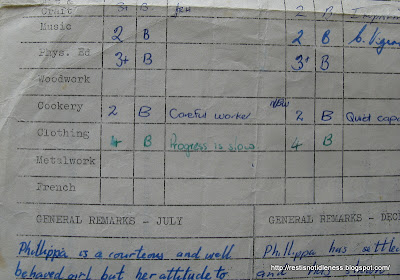 Craft 3+ B 2 B
Music 2 B 2 B
Phys. Ed 3+ B 3+ B
Woodwork
Cookery 2 B Careful worker NEW 2 B Quiet
Clothing 4 B Progress is slow 4 B
Metalwork
French
GENERAL REMARKS - JULY GENERAL REMARKS - DEC
Phillippa is a courteous and well Phillippa has settled
behaved girl but her attitude to and
http://restisnotidleness.blogspot.com/